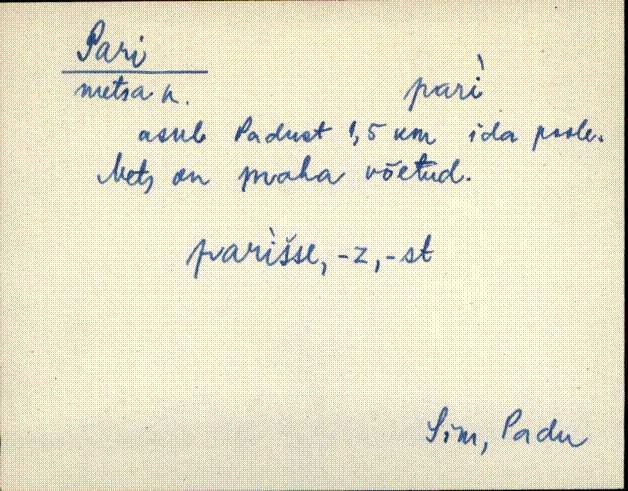 Pari
metsa n. parì
asub Padust 1,5 km ida poole.
Mets on maha võetud.
parìšse, -z, -st
Sim, Padu